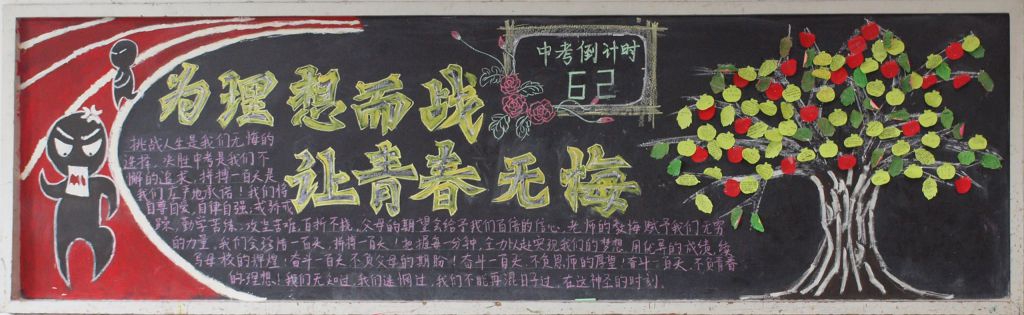 中考倒计时
62
为理想而战
让青春无悔
挑战人生是我们无悔的
选择，决胜中考是我们不
懈的追求，拼搏一百天是
我们庄严地承诺！我们将
自尊自爱，自律自强，戒骄戒
躁，勤学苦练，攻坚苦难，百折不挠。父母的期望会给予我们百倍的信心，老师的教诲赋予我们无穷
的力量，我们会珍惜一百天，拼搏一百天！把握每一分钟，全力以赴实现我们的梦想，用优异的成绩，续
写母校的辉煌！奋斗一百天，不负父母的期盼！奋斗一百天，不负恩师的厚望！奋斗一百天，不负青春
的理想！我们无知过，我们迷惘过，我们不能再混日子过，在这神圣的时刻.